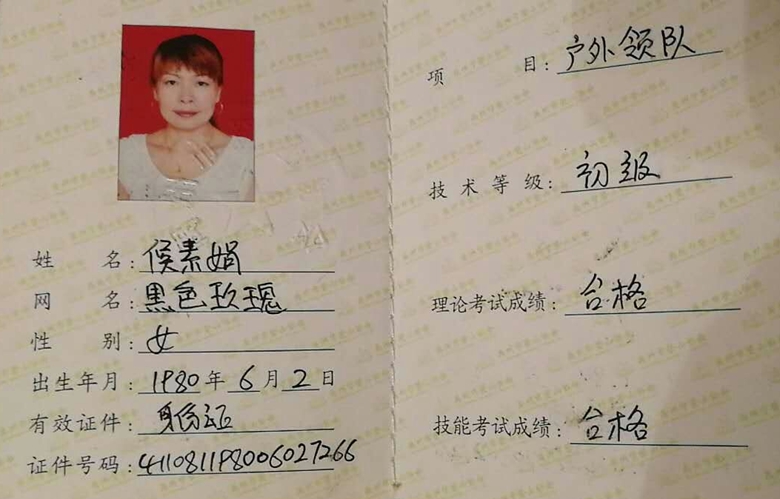 姓名:侯素娟
网名:黑色玫瑰
性别:女
出生年月:1980年6月2日
有效证件:身份证
证件号码:411081198006027266
项目:户外领队
技术等级:初级
理论考试成绩:合格
技能考试成绩:合格